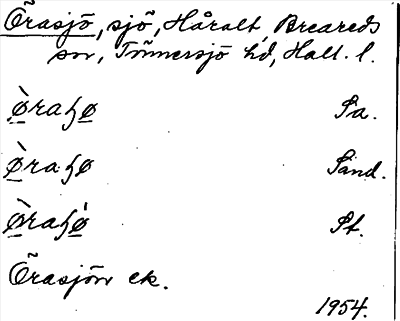 Örasjö, sjö, Håralt, Breareds
sn, Tönnersjö hd, Hall. l.
ø̲̀raɧø̲ Sa.
ø̲̀raɧø Sand.
ø̲̀raɧǿ̲ St.
Örasjön ek.
1954.